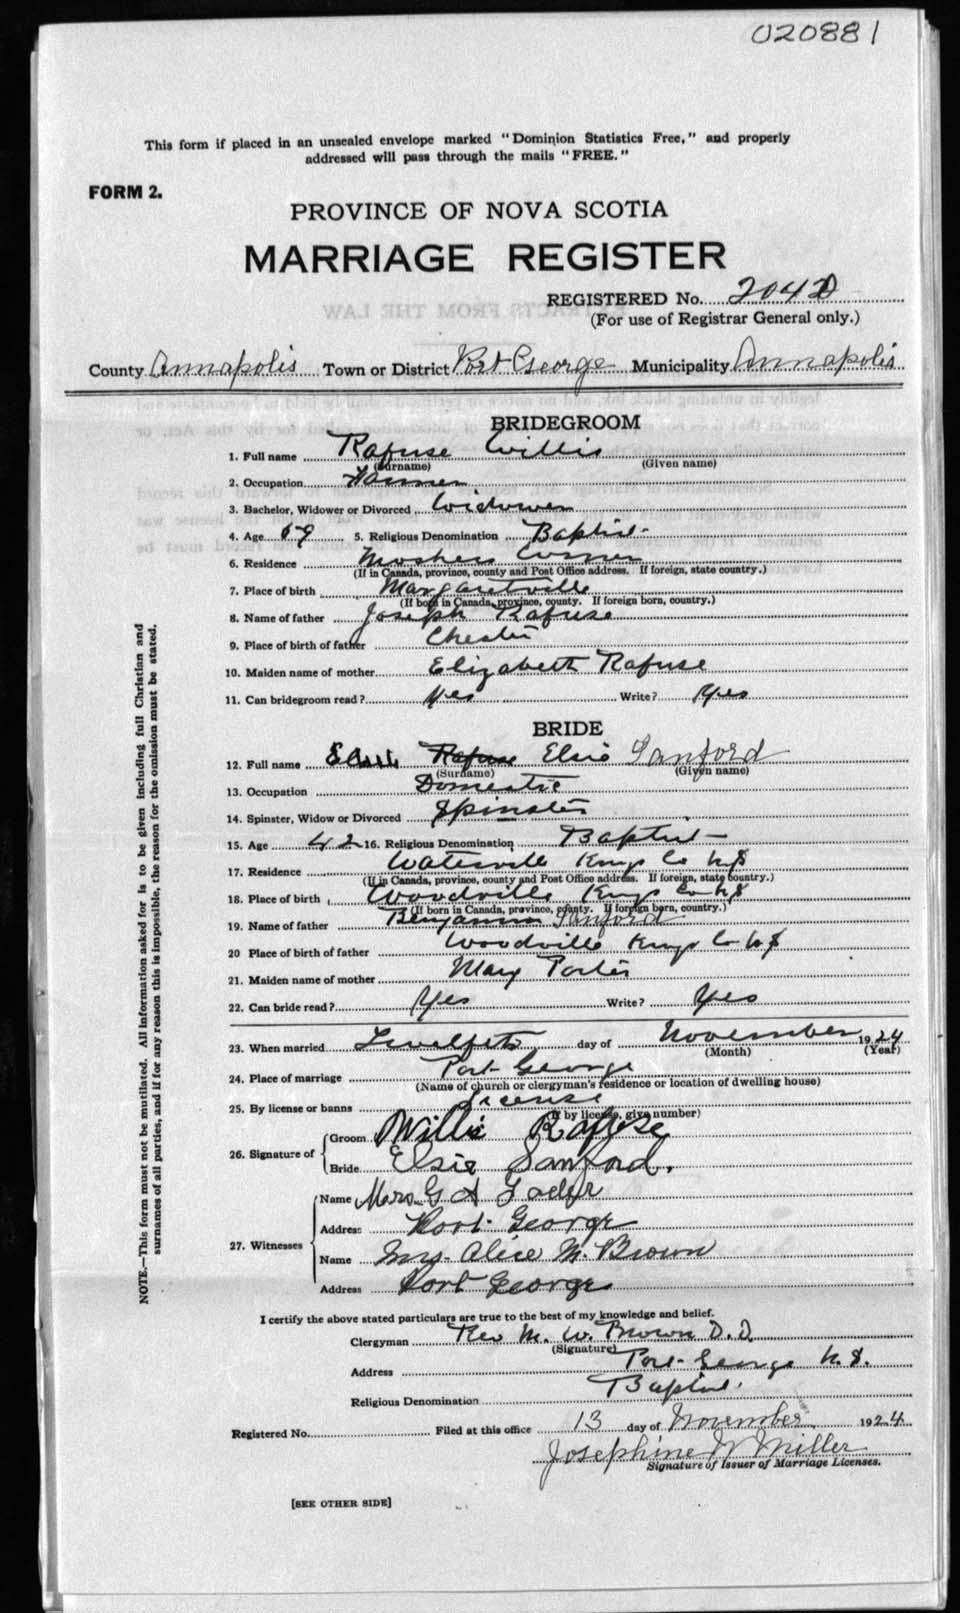 020881
This form if placed in an unsealed envelope marked "Dominion Statistics Free," and properly
addressed will pass through the mails "FREE."
FORM 2.
PROVINCE OF NOVA SCOTIA
MARRIAGE REGISTER
REGISTERED No. 2042
(For use of Registrar General only.)
County Annapolis Town or District Port George Municipality Annapolis
BRIDEGROOM
1. Full name Rafuse Willis
(Surname) (Given name)
2. Occupation Farmer
3. Bachelor, Widower or Divorced Widower
4. Age 69 5. Religious Denomination Baptist
6. Residence Moshers Corner
(If in Canada, province, county and Post Office address. If foreign, state country.)
7. Place of birth Margaretville
(If born in Canada, province, county. If foreign born, country.)
8. Name of father Joseph Rafuse
9. Place of birth of father Chester
10. Maiden name of mother Elizabeth Rafuse
11. Can bridegroom read? Yes Write? Yes
BRIDE
12. Full name Rafuse Elsie Sanford
(Surname) (Given name)
13. Occupation Domestic
14. Spinster, Widow or Divorced Spinster
15. Age 42 16. Religious Denomination Baptist
17. Residence Waterville Kings Co N.S
(If in Canada, province, county and Post Office address. If foreign, state country.)
18. Place of birth Woodville Kings Co N.S
(If born in Canada, province, county. If foreign born, country.)
19. Name of father Benjamin Sanford
20 Place of birth of father Woodville Kings Co N.S
21. Maiden name of mother Mary Porter
22. Can bride read? Yes Write? Yes
23. When married Twelfth day of November 1924
(Month) (Year)
24. Place of marriage Port George
(Name of church or clergyman's residence or location of dwelling house)
25. By license or banns License
(If by license, give number)
26. Signature of
Groom Willis Rafuse
Bride Elsie Sanford.
27. Witnesses
Name Mrs. G A
Address Port George
Name Mrs. Alice M. Brown
Address Port George
I certify the above stated particulars are true to the best of my knowledge and belief.
Clergyman Rev M. W. Brown D.D.
(Signature)
Address Port George N.S.
Religious Denomination Baptist.
Registered No. Filed at this office 13 day of November 1924
Josephine W Miller
Signature of Issuer of Marriage Licenses.
[SEE OTHER SIDE]
NOTE.—This form must not be mutilated. All information asked for is to be given including full Christian and
surnames of all parties, and if for any reason this is impossible, the reason for the omission must be stated.